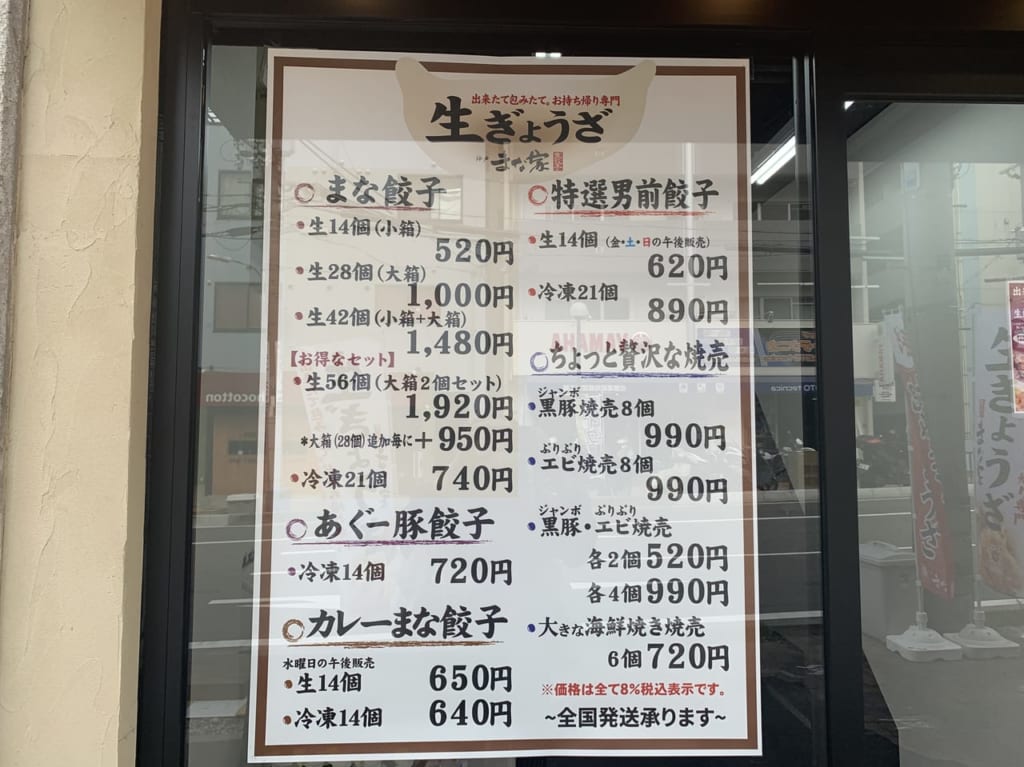 出来たて包みたて。お持ち帰り専門
生ぎょうざ
まな家
まな餃子
生14個(小箱)
520円
生28個(大箱)
1,000円
生42個(小箱+大箱)
1,480円
【お得なセット】
生56個(大箱2個セット)
1,920円
*大箱(28個)追加毎に+950円
冷凍21個 740円
あぐー豚餃子
冷凍14個 720円
カレーまな餃子
水曜日の午後販売
生14個 650円
冷凍14個 640円
特選男前餃子
生14個(金・土・日の午後販売)
620円
冷凍21個
890円
ちょっと贅沢な焼売
ジャンボ
黒豚焼売8個
990円
ぷりぷり
エビ焼売8個
990円
ジャンボ ぷりぷり
黒豚・エビ焼売
各2個520円
各4個990円
大きな海鮮焼き焼売
6個720円
※価格は全て8%税込表示です。
~全国発送承ります~
YAMAHA
chocotton
生ぎょうざ